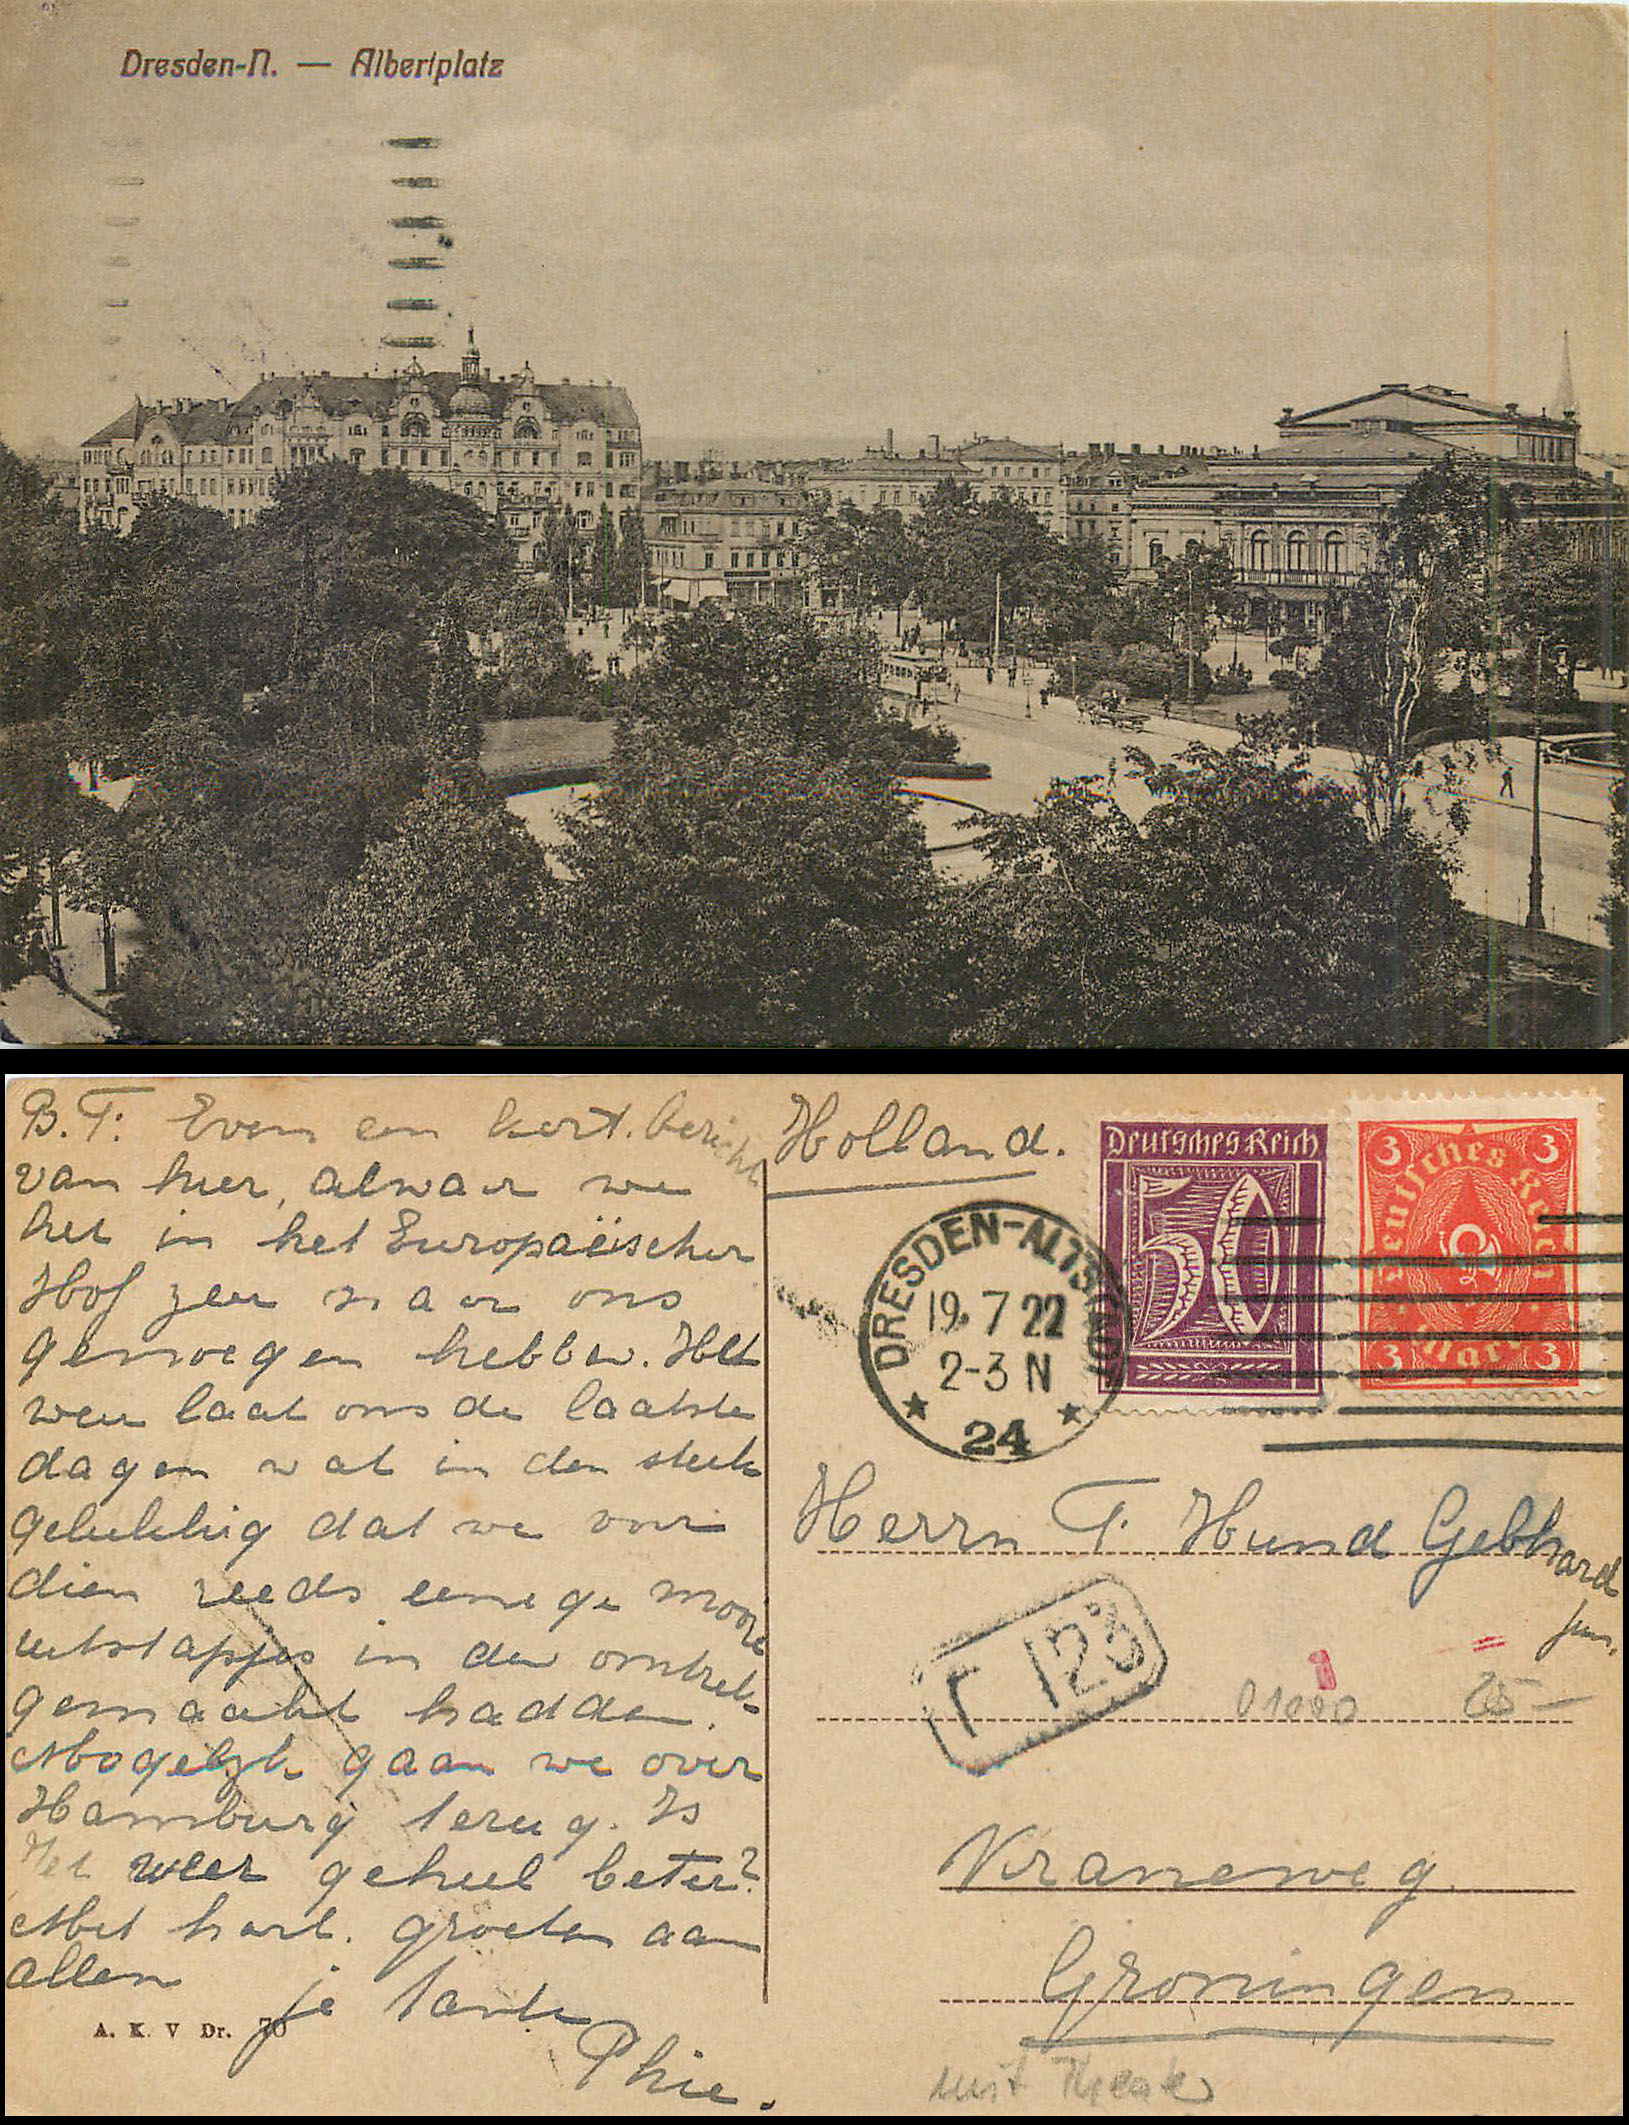 Dresden-N. — Albertplatz
B. T. Even een kort. bericht
van hier, alwaar we
het in het Europaëischer
Hof zeer naar ons
genoegen hebben. Het
weer laat ons de laatste
dagen wat in den steek
gelukkig dat we voor
dien reeds eenige mooie
uitstapjes in den omtrek
gemaakt hadden.
Mogelijk gaan we over
Hamburg terug. Is
Het weer geheel beter?
Met hart. groeten aan
allen
je tante
Phie.
A. K. V Dr. 70
Holland.
Deutsches Reich
50
3 3
Deutsches Reich
Mark
3 3
DRESDEN-ALTSTADT
19. 7 22
2-3 N
24
Herrn T. Hund Gebhard
jun.
T 123
01090
25-
Kraneweg
Groningen
mit